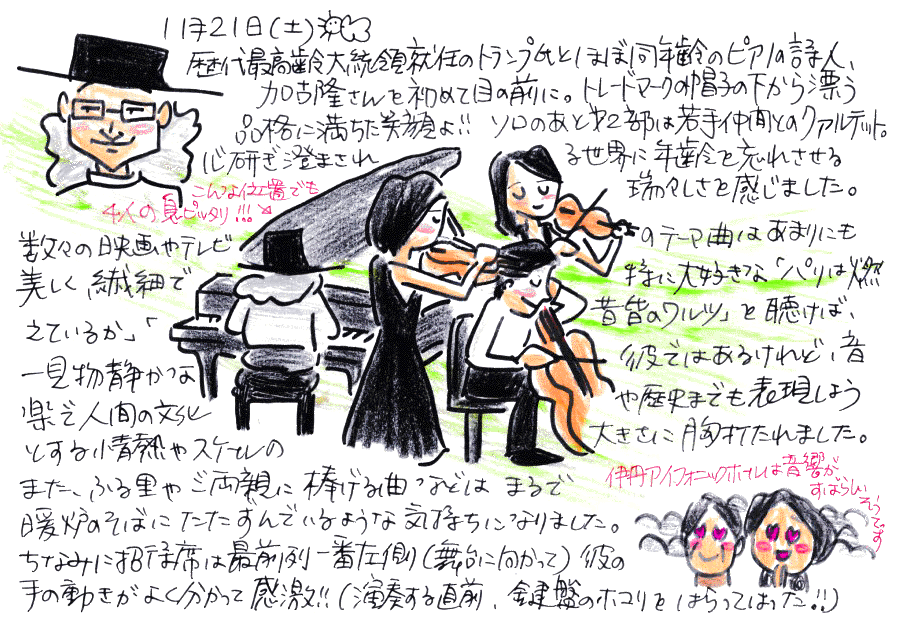 11月21日(土)
歴代最高齢大統領就任のトランプ氏とほぼ同年齢のピアノの詩人、
加古隆さんを初めて目の前に。トレードマークの帽子の下から漂う
品格に満ちた笑顔よ!! ソロのあと第2部は若手仲間とのクァルテット。
心研ぎ澄まされ る世界に年齢を忘れさせる
瑞々しさを感じました。
こんな位置でも
4人の息ピッタリ!!!
数々の映画やテレビ のテーマ曲はあまりにも
美しく繊細で 特に大好きな「パリは燃
えているか」「 昔皆のワルツ」を聴けば、
一見物静かな 彼ではあるけれど、音
楽で人間の文化 や歴史までも表現しよう
とする情熱やスケールの 大きさに胸打たれました。
また、ふる里やご両親に捧げる曲などは まるで
暖炉のそばにたたずんでいるような気持ちになりました。
ちなみに招待席は最前列一番左側(舞台に向かって)彼の
手の動きがよく分かって感激!!(演奏する直前、鍵盤のホコリをはらってはった!!)
伊丹アイフォニックホールは音響が
すばらしい
そうです